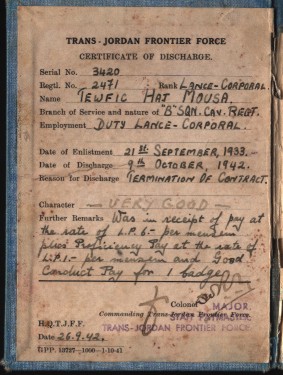 TRANS-JORDAN FRONTIER FORCE
CERTIFICATE OF DISCHARGE.
Serial No. 3420
Regtl. No. 2471 Rank LANCE-CORPORAL.
Name TEWFIC HAJ MOUSA.
Branch of Service and nature of "B" SQN. CAV. REGT.
Employment DUTY LANCE-CORPORAL.
Date of Enlistment 21st SEPTEMBER, 1933.
Date of Discharge 9th OCTOBER, 1942.
Reason for Discharge TERMINATION OF CONTRACT.
Character — VERY GOOD —
Further Remarks Was in receipt of pay at
the rate of L.P.6- per mensem
plus Proficiency Pay at the rate of
L.P.1.- per mensem and Good
Conduct Pay for 1 badge.
Colonel
MAJOR
Commanding Trans-Jordan Frontier Force.
STAFF PAYMASTER
TRANS-JORDAN FRONTIER FORCE
H.Q.T.J.F.F.
Date 26.9.42.
GPP. 13727—1000—1-10-41